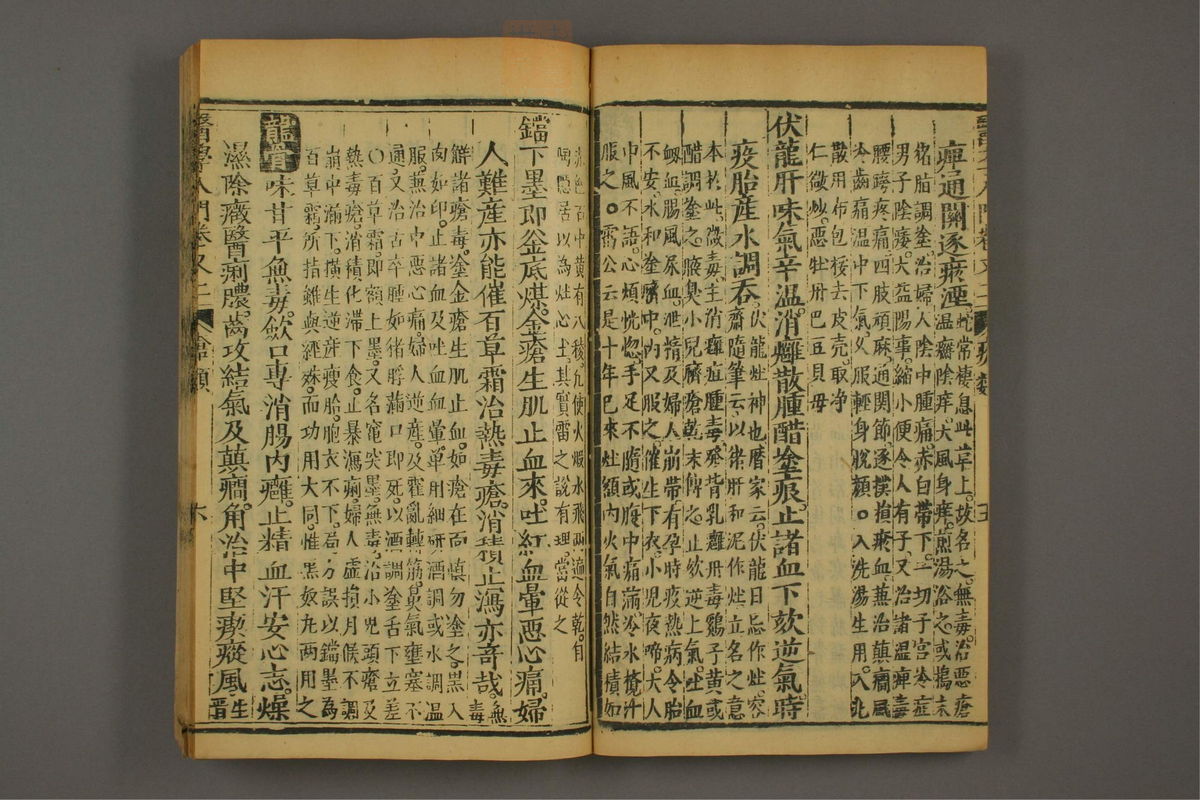 痺通關逐瘀湮。蛇常棲息此草上。故名之。無毒。治惡瘡
猪脂調塗。治婦人陰中腫痛。赤白帶下。一切子宮冷症
男子陰痿。大益陽事。縮小便。令人有子。又治諸溫痺毒
腰膀疼痛。四肢頑麻。通關節。逐撲損瘀血。兼治顛癎風
冷齒痛。溫中下氣。久服輕身駐顏。○入洗湯生用。入丸
散用布包挼去皮殼。取淨
仁微炒。惡牡丹巴豆貝母
伏龍肝味氣辛溫。消癰散腫醋塗痕。止諸血下欬逆氣。時
疫胎産水調吞。伏龍灶神也。曆家云。伏龍日忌作灶。容
齋隨筆云。以猪肝和泥作灶。立名之意
本於此。微毒。主消癰疽腫毒。發背乳癰丹毒。鷄子黃或
醋調塗之。腋臭小兒臍瘡。乾末傅之。止欬逆上氣。吐血
衂血。腸風尿血。泄精及婦人崩帶。有孕時疫熱病。令胎
不安。水和塗臍中。內又服之。催生下衣。小兒夜啼。大人
中風不語。心煩恍惚。手足不隨。或腹中痛滿。冷水攪汁
服之。○雷公云。是十年已來灶額內火氣自然結積如
赤色石中黃。有八稜。凡使火煅水飛兩遍。令乾。自
隅隱居以為灶心土。其實雷之說有理。當從之
鐺下墨即釜底煤。金瘡生肌止血來。吐紅血暈惡心痛。婦
人難産亦能催。百草霜治熱毒瘡。消積止瀉亦奇哉。無毒
鮮諸瘡毒。塗金瘡生肌止血。如瘡在面慎勿塗之。黑入
肉如印。止諸血及吐血血暈。單用細研酒調或水調溫
服。兼治中惡心痛。婦人逆産。及霍亂轉筋。鼻氣壅塞不
通。又治舌卒腫如猪脬滿口即死。以酒調塗舌下立差
○百草霜。即額上墨。又名竈突墨。無毒。治小兒頭瘡及
熱毒瘡。消積化滯下食。止暴瀉痢。婦人虛損月候不調
崩中漏下。橫生逆産。瘦胎胞衣不下。局方誤以鐺墨為
百草霜。所指雖與經殊。而功用大同。惟黑奴丸兩用之
龍骨味甘平無毒。歛口專消腸內癰。止精血汗安心志。燥
濕除癥醫痢膿。齒攻結氣及顛癎。角治中堅瘈瘲風。生晋